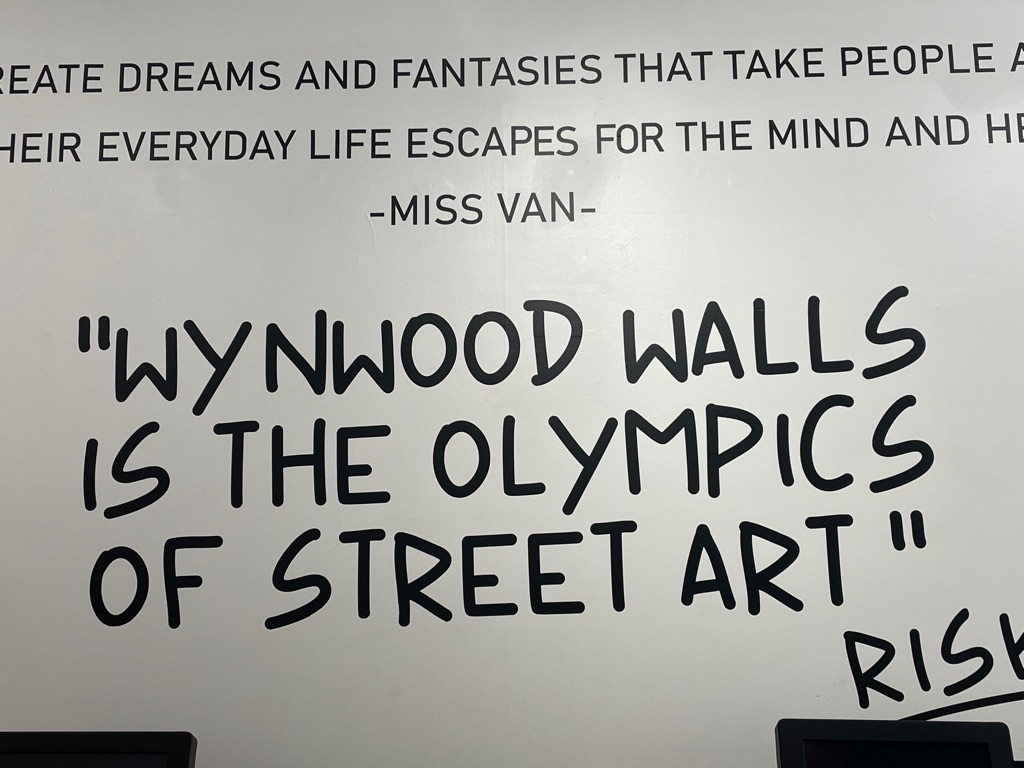 REATE DREAMS AND FANTASIES THAT TAKE PEOPLE A
HEIR EVERYDAY LIFE ESCAPES FOR THE MIND AND HE
-MISS VAN-
"WYNWOOD WALLS
IS THE OLYMPICS
OF STREET ART "
RISK